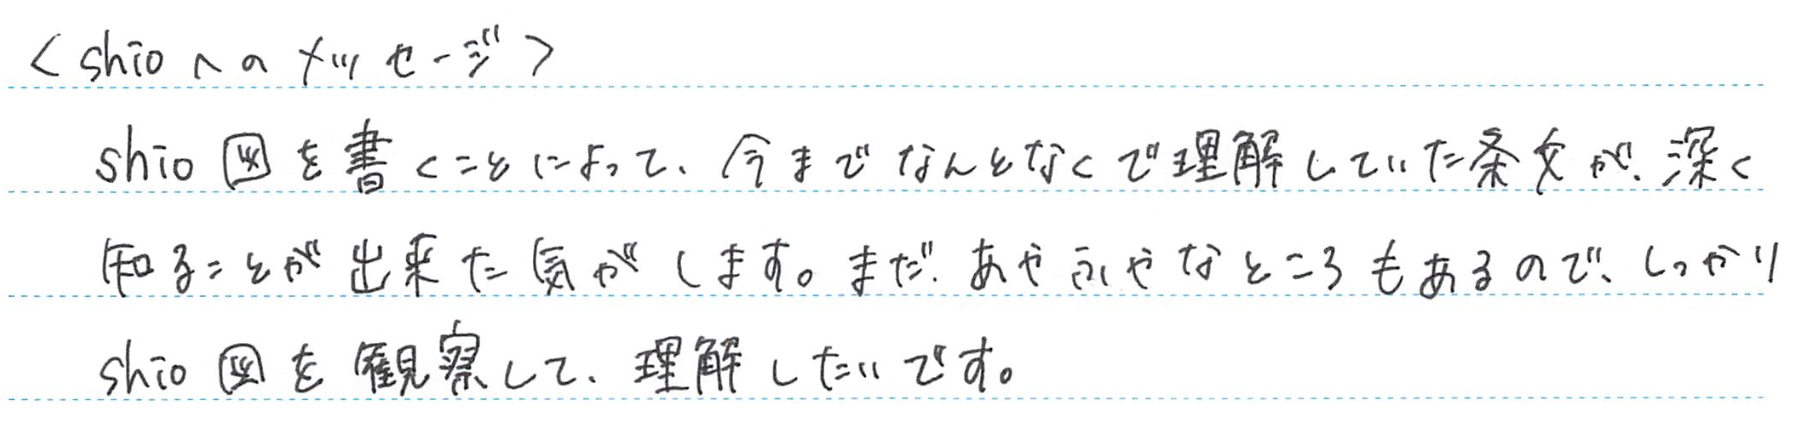 <shioへのメッセージ>
shio図を書くことによって、今までなんとなくで理解していた条文が、深く
知ることが出来た気がします。まだ、あやふやなところもあるので、しっかり
shio図を観察して、理解したいです。